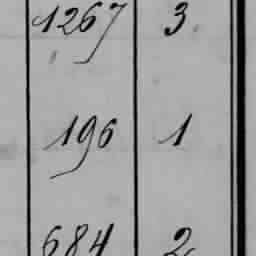 1267 3
196 1
684 2